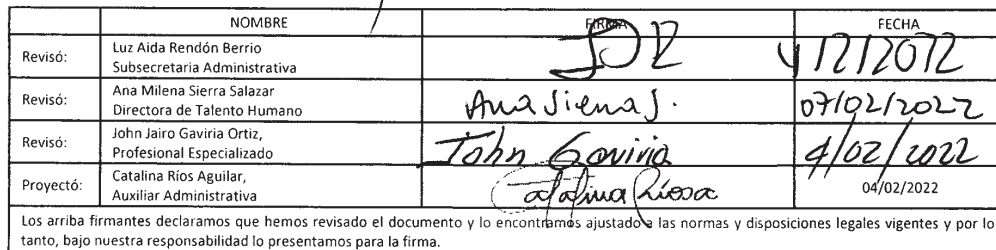 NOMBRE FIRMA FECHA
Revisó: Luz Aida Rendón Berrio
Subsecretaria Administrativa
Revisó: Ana Milena Sierra Salazar
Directora de Talento Humano
Ana Sierra S. 07/02/2022
Revisó: John Jairo Gaviria Ortiz,
Profesional Especializado
John Gaviria 4/02/2022
Proyectó: Catalina Ríos Aguilar,
Auxiliar Administrativa
Catalina Ríosa 04/02/2022
Los arriba firmantes declaramos que hemos revisado el documento y lo encontramos ajustado a las normas y disposiciones legales vigentes y por lo
tanto, bajo nuestra responsabilidad lo presentamos para la firma.